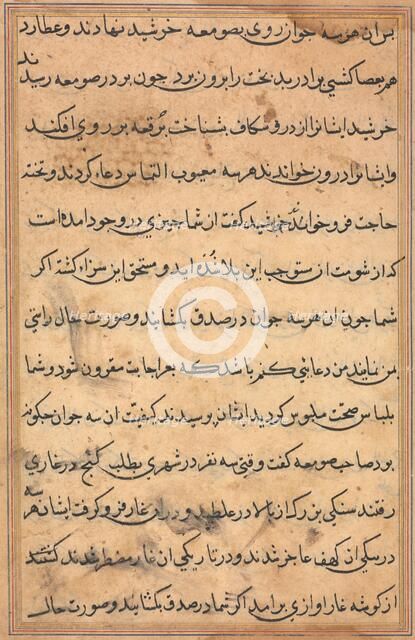 پس ان هر سه جوان روی بصومعه خرشید نهادند و عطارد
هم بعصا کشی برادر بدبخت را برون برد جون بر در صومعه رسیدند
خرشید ایشانرا از در و شکاف بشناخت برقعه بر روی افکند
و ایشانرا درون خواندند هر سه معیوب التماس دعا کردند و تخته
حاجت فرو خواندند خرشید کفت از شما جیزی در وجود امده است
که از شومت ان مستوجب این بلا شده اید و مستحق این سزاء کشته اکر
شما جون ان هر سه جوان در صدق بکشایید و صورت حال راستی
بمن نمایید من دعائی کنم باشد که بعز اجابت مقرون شود و شما
بلباس صحت ملبوس کردید ایشان پرسیدند کیفیت ان سه جوان جکونه
بود صاحب صومعه کفت وقتی سه نفر در شهری بطلب کنج در غاری
رفتند سنکی بزرک از بالا در غلطید و در ان غار فرو کرفت ایشان هر سه
در سکی ان کهف عاجز شدند و در تاریکی ان غار مضطر شدند کشتند
از کوشه غار اوازی بر امد اکر شما در صدق بکشایید و صورت حال